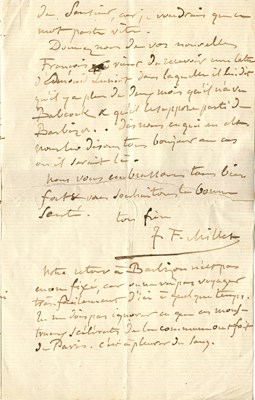 de Sensier, car je voudrais que ce
mot parte vite.
Donnez nous de vos nouvelles
François vient de recevoir une lettre
d'Edmond dans laquelle il lui dit
qu'il y a plus de deux mois qu'il n'a vu
Babcock & qu'il le suppose parti de
Barbizon. Dis nous ce qui en est
nous lui disons tous bonjour au cas
où il serait là.
Nous vous embrassons tous bien
fort & vous souhaitons la bonne
santé.
ton frère
J. F. Millet
Notre retour à Barbizon n'est pas
encore fixé, car on ne voit pas voyager
très facilement d'ici à quelque temps.
Tu ne dois pas ignorer ce que ces mons-
trueux scélérats de la commune ont fait
de Paris. c'est à pleurer du sang.